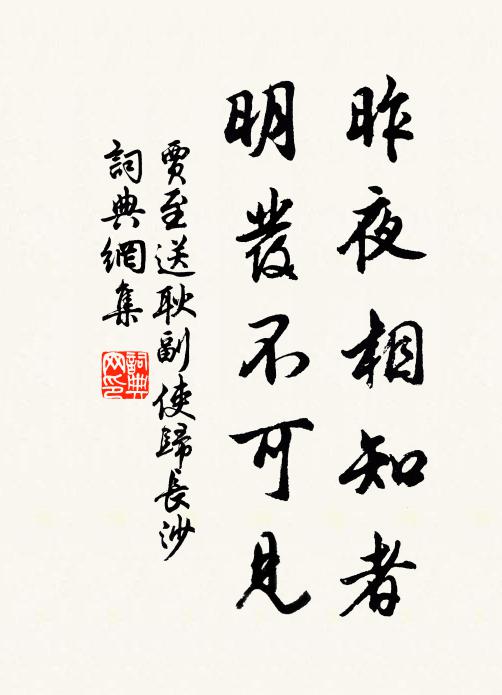 昨夜相知者
明發不可見
賈至送耿副使歸長沙
詞典網集
詞典網印